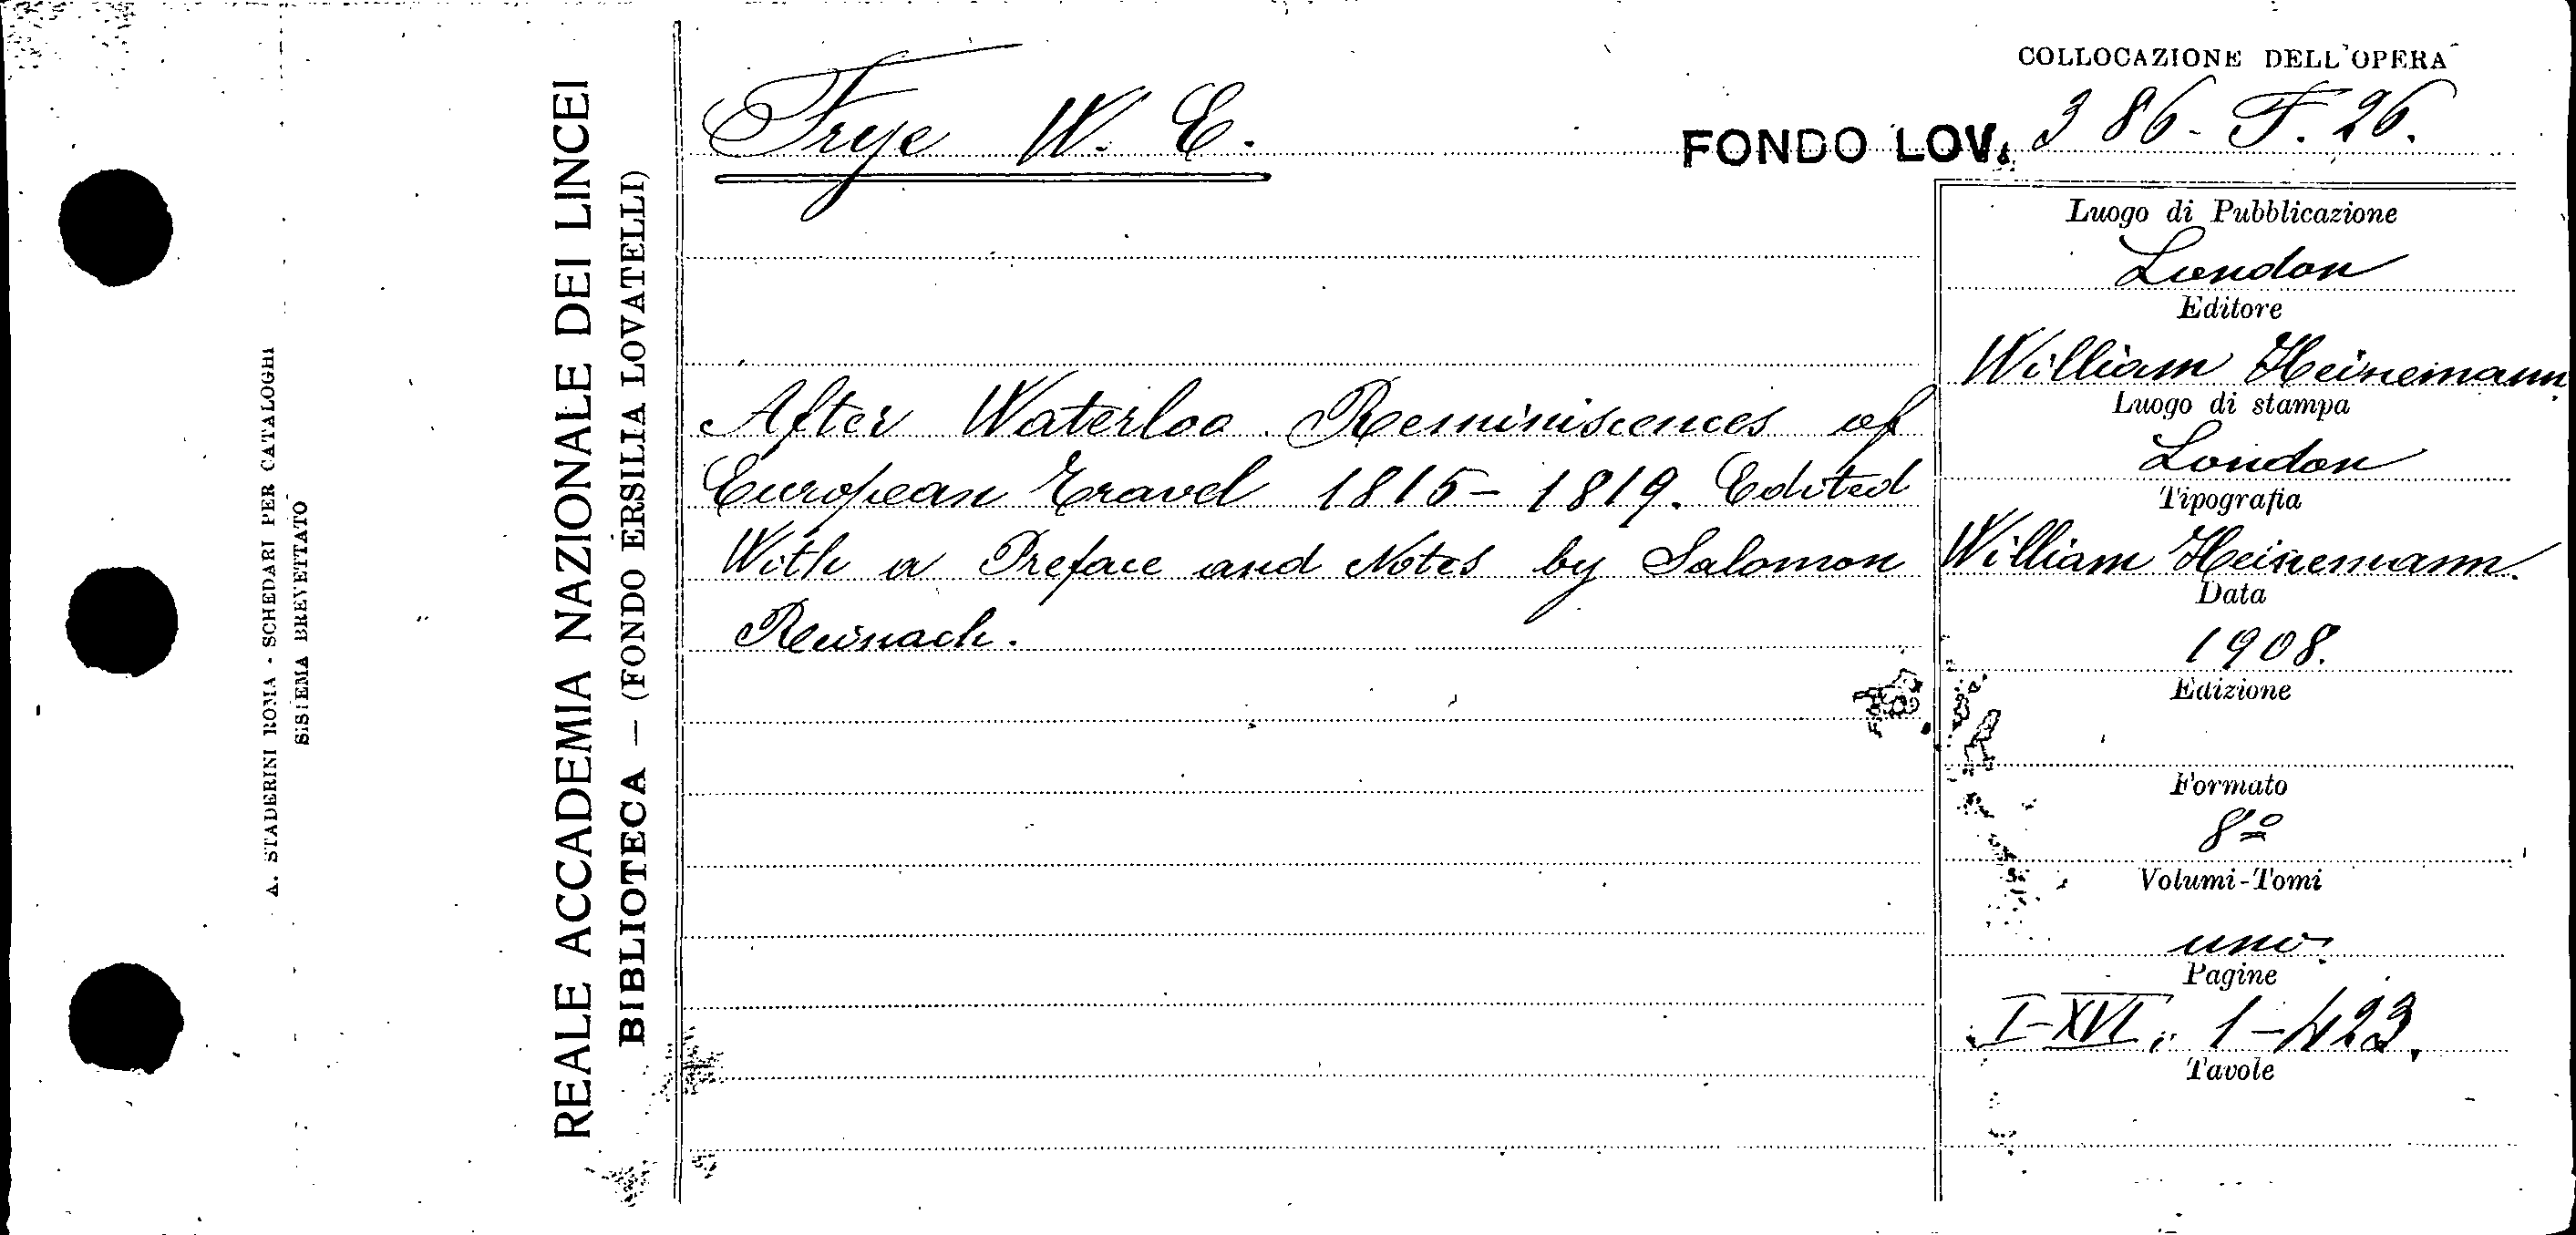 A. STADERINI ROMA - SCHEDARI PER CATALOGHI
SISTEMA BREVETTATO
REALE ACCADEMIA NAZIONALE DEI LINCEI
BIBLIOTECA — (FONDO ERSILIA LOVATELLI)
Frye W. E.
COLLOCAZIONE DELL'OPERA
FONDO LOV. 386 - F. 26.
After Waterloo. Reminiscences of
European Travel 1815 - 1819. Edited
With a Preface and Notes by Salomon
Reinach.
Luogo di Pubblicazione
London
Editore
William Heinemann
Luogo di stampa
London
Tipografia
William Heinemann.
Data
1908.
Edizione
Formato
8º
Volumi-Tomi
uno.
Pagine
I-XVI; 1-423.
Tavole